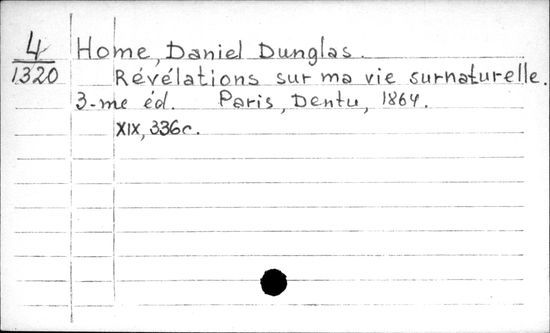 4
1320
Home, Daniel Dunglas.
Révélations sur ma vie surnaturelle.
3-me éd. Paris, Dentu, 1864.
XIX, 336c.